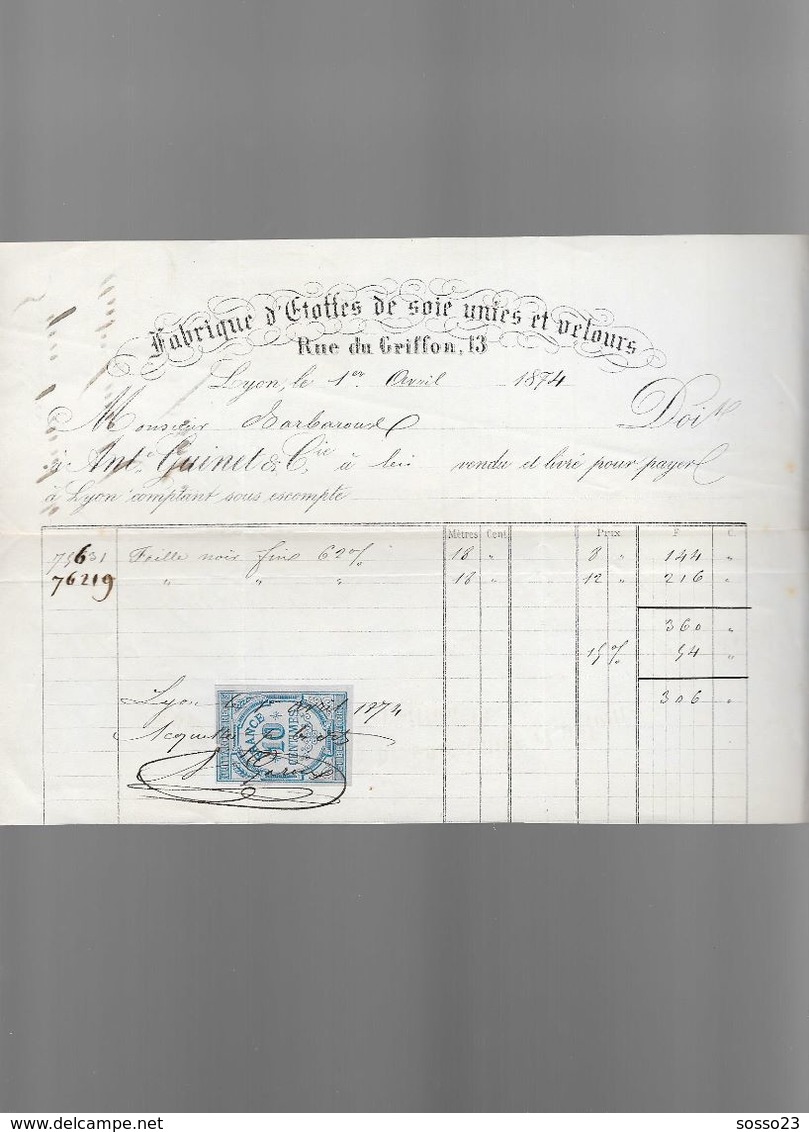 Fabrique d'Etoffes de soie unies et velours
Rue du Griffon, 13
Lyon, le 1er Avril 1874
Monsieur Barbaroux Doit
à Ant.e Guinet & Cie à lui vendu et livré pour payer
à Lyon comptant sous escompte
Mètres Cent. Prix F C.
75631 Faille noir fine 62% 18 " 8 " 144 "
76219 " " " 18 " 12 " 216 "
360 "
15% 54 "
306 "
Lyon le 1er avril 1874
Acquitté
FRANCE
10
CENTIMES
www.delcampe.net sosso23